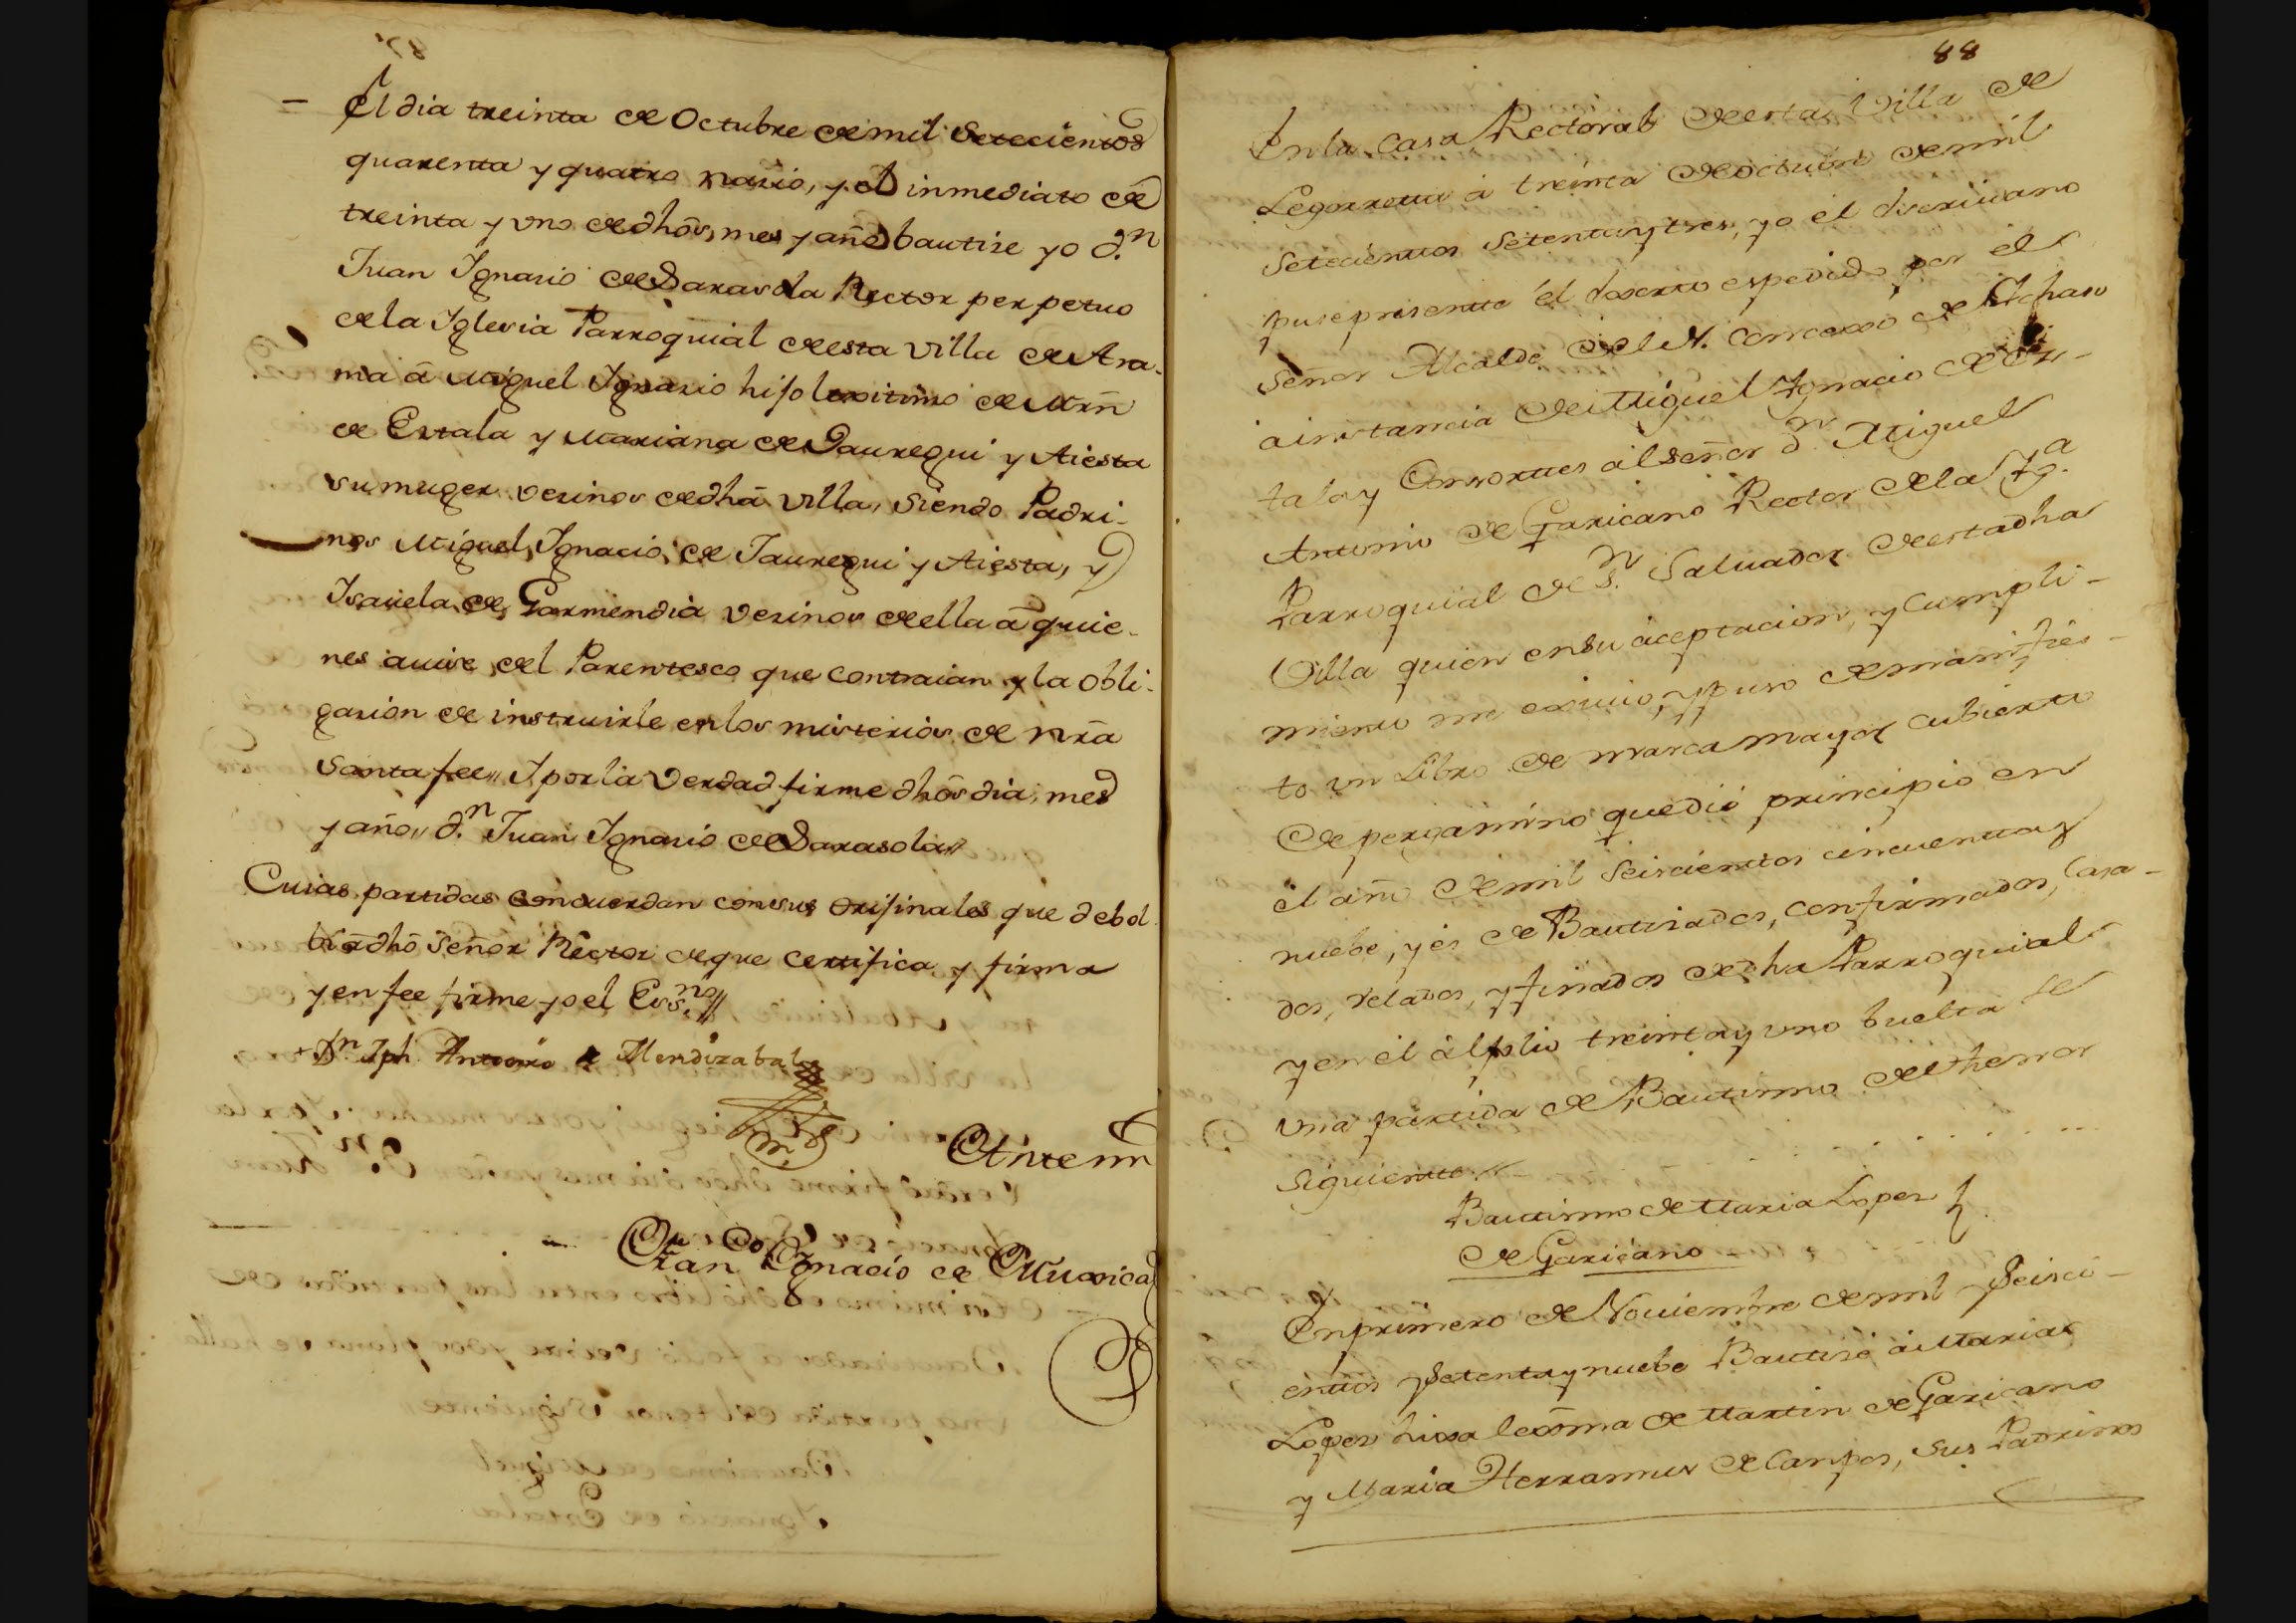 El dia treinta de Octubre de mil setecientos
quarenta y quatro nasio, y el inmediato de
treinta y uno de dhōs, mes y año bautise yo d.n
Juan Ignasio de Sarasola Rector perpetuo
de la Iglesia Parroquial de esta villa de Ara-
ma â Miguel Ignasio hijo lexitimo de Mrn̄
de Estala y Mariana de Jauregui y Aiesta
su muger vesinos de dhā villa, siendo Padri-
nos Miguel Ignacio de Jauregui y Aiesta, y
Isavela de Garmendia vesinos de ella â quie-
nes auise del Parentesco que contraian y la obli-
gasion de instruirle en los misterios de nrā
santa fee,, I por la verdad firme dhōs dia, mes
y año,, d.n Juan Ignasio de Sarasola,,
Cuias partidas concuerdan con sus orijinales que debol
bio â dhō señor Rector de que certifica y firma
y en fee firme yo el Ess.no //
+ Dn Jph. Antonio de Mendizabal
Ante mi
Juan Ignacio de
88
En la casa Rectoral de esta Villa de
Legorreta á treinta de octubre de mil
setecientos setenta y tres, yo el Escriuano
puse presente el Exorto espedido por el
señor Alcalde del N. Concexo de Ichaso
a instancia de Miguel Ignacio de Es-
tala y Orrortes al señor d.n Miguel
Antonio de Garicano Rector de la Ig.a
Parroquial de S.n Saluador de esta dha
Villa quien en su aceptacion, y cumpli-
miento me exiuio, y puso de manifies-
to un Libro de marca mayor cubierto
de pergamino que dió principio en
el año de mil seiscientos cincuenta y
nuebe, y es de Bautisados, confirmados, Casa-
dos, Velados, y finados de dha Parroquial
y en el al folio treinta y uno buelta se
una partida de Bautismo del thenor
siguiente //
Bautismo de Maria Lopes
de Garicano
En primero de Nouiembre de mil seisci-
entos setenta y nuebe Bautisé á Maria
Lopes hixa lexma de Martin de Garicano
y Maria Herramus de Campos, sus Padrinos